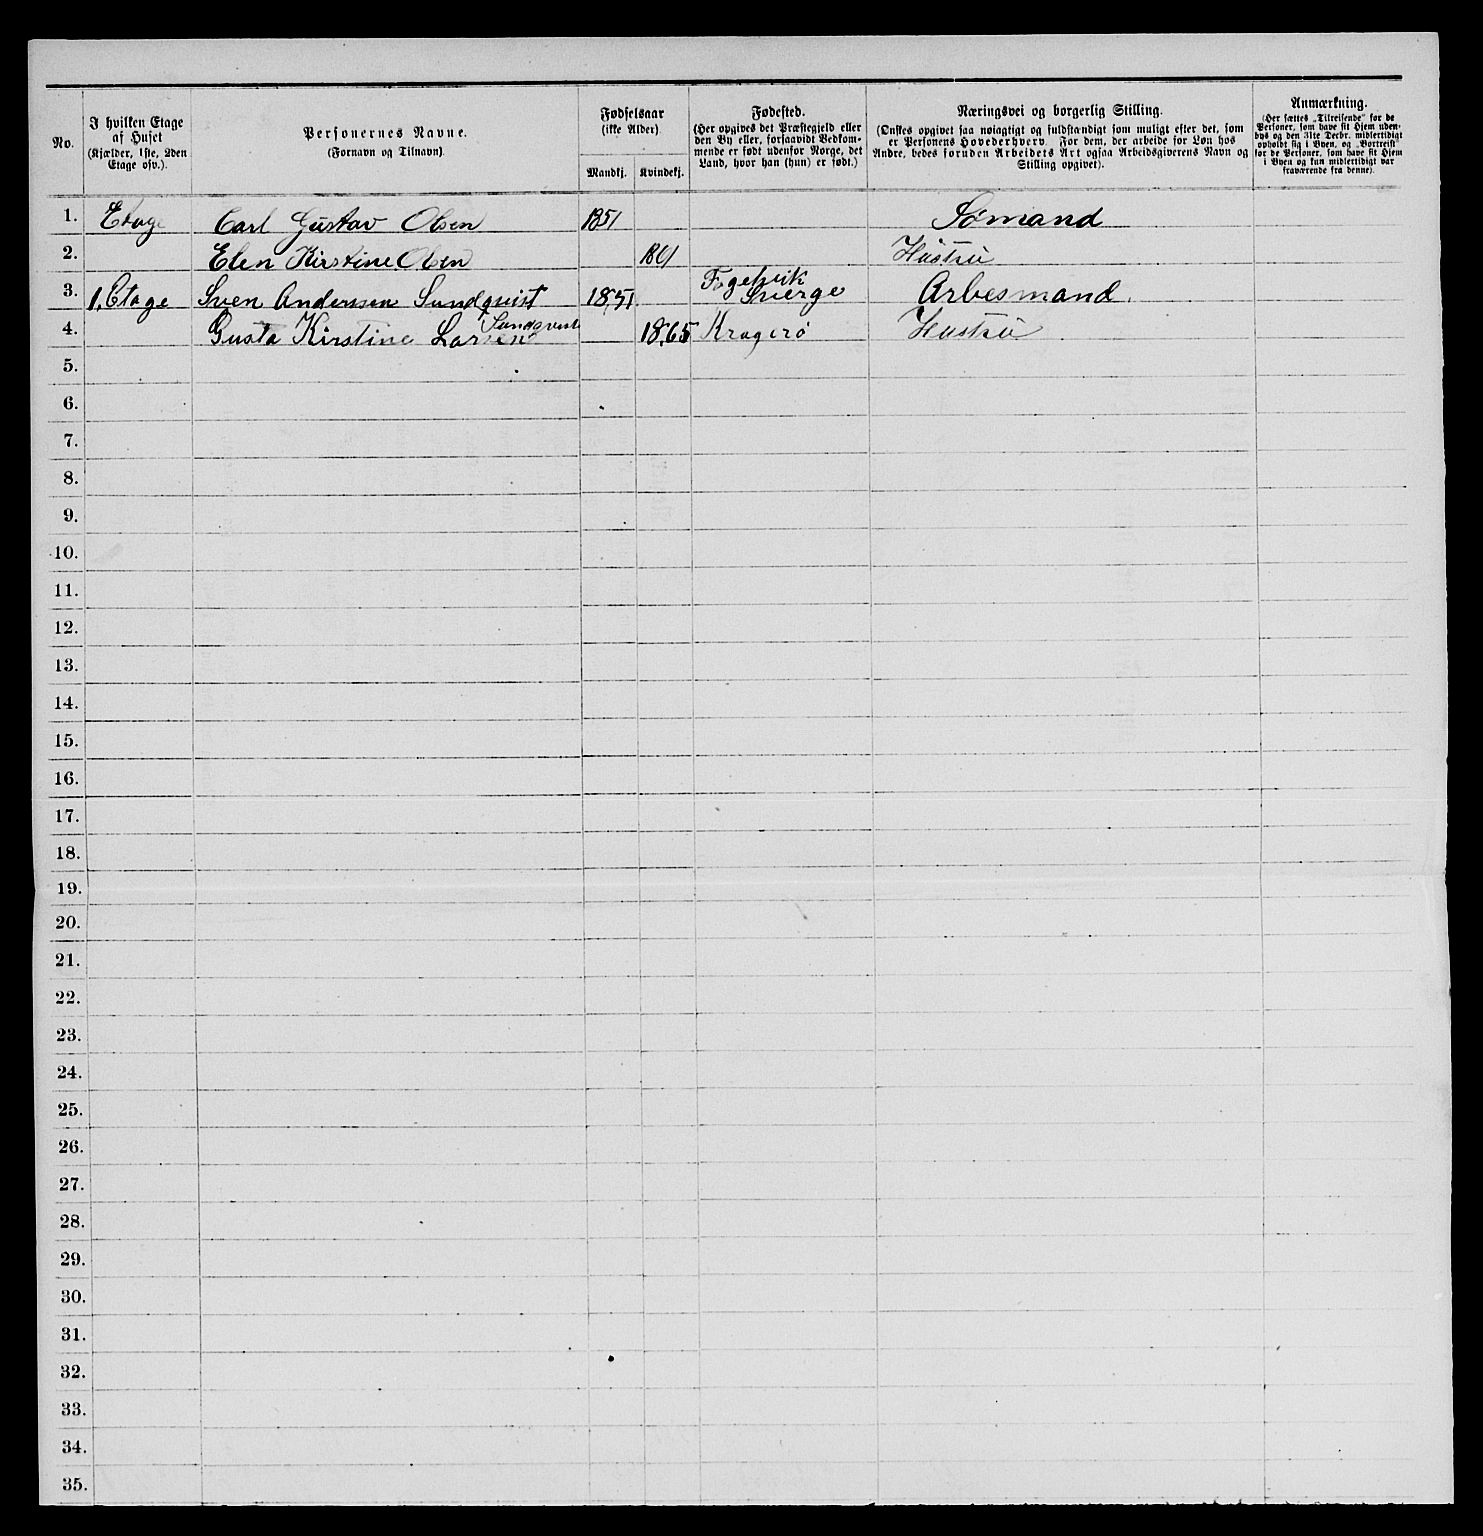 No.
I hvilken Etage
af Huset
(Kjælder, 1ste, 2den
Etage osv.).
Personernes Navne.
(Fornavn og Tilnavn).
Fødselsaar
(ikke Alder)
Mandkj. Kvindekj.
Fødested.
(Her opgives det Præstegjeld eller
den By eller, forsaavidt Vedkom-
mende er født udenfor Norge, det
Land, hvor han (hun) er født.)
Næringsvei og borgerlig Stilling.
(Ønskes opgivet saa nøiagtigt og fuldstændigt som muligt efter det, som
er Personens Hovederhverv. For dem, der arbeide for Løn hos
Andre, bedes foruden Arbeidets Art ogsaa Arbeidsgiverens Navn og
Stilling opgivet).
Anmærkning.
(Her sættes „Tilreisende" for de
Personer, som have sit Hjem uden-
bys og den 31te Decbr. midlertidigt
opholdt sig i Byen, og „Bortreist"
for de Personer, som have sit Hjem
i Byen og kun midlertidigt var
fraværende fra denne).
1. Etage Carl Gustav Olsen 1851 Sømand
2. Elen Kirstine Olsen 1861 Hustru
3. 1. Etage Sven Anderssen Sundqvist 1851 Sverge Arbesmand.
4. Gusta Kirstine Larsen Sundqvist 1865 Kragerø Hustru
5.
6.
7.
8.
9.
10.
11.
12.
13.
14.
15.
16.
17.
18.
19.
20.
21.
22.
23.
24.
25.
26.
27.
28.
29.
30.
31.
32.
33.
34.
35.